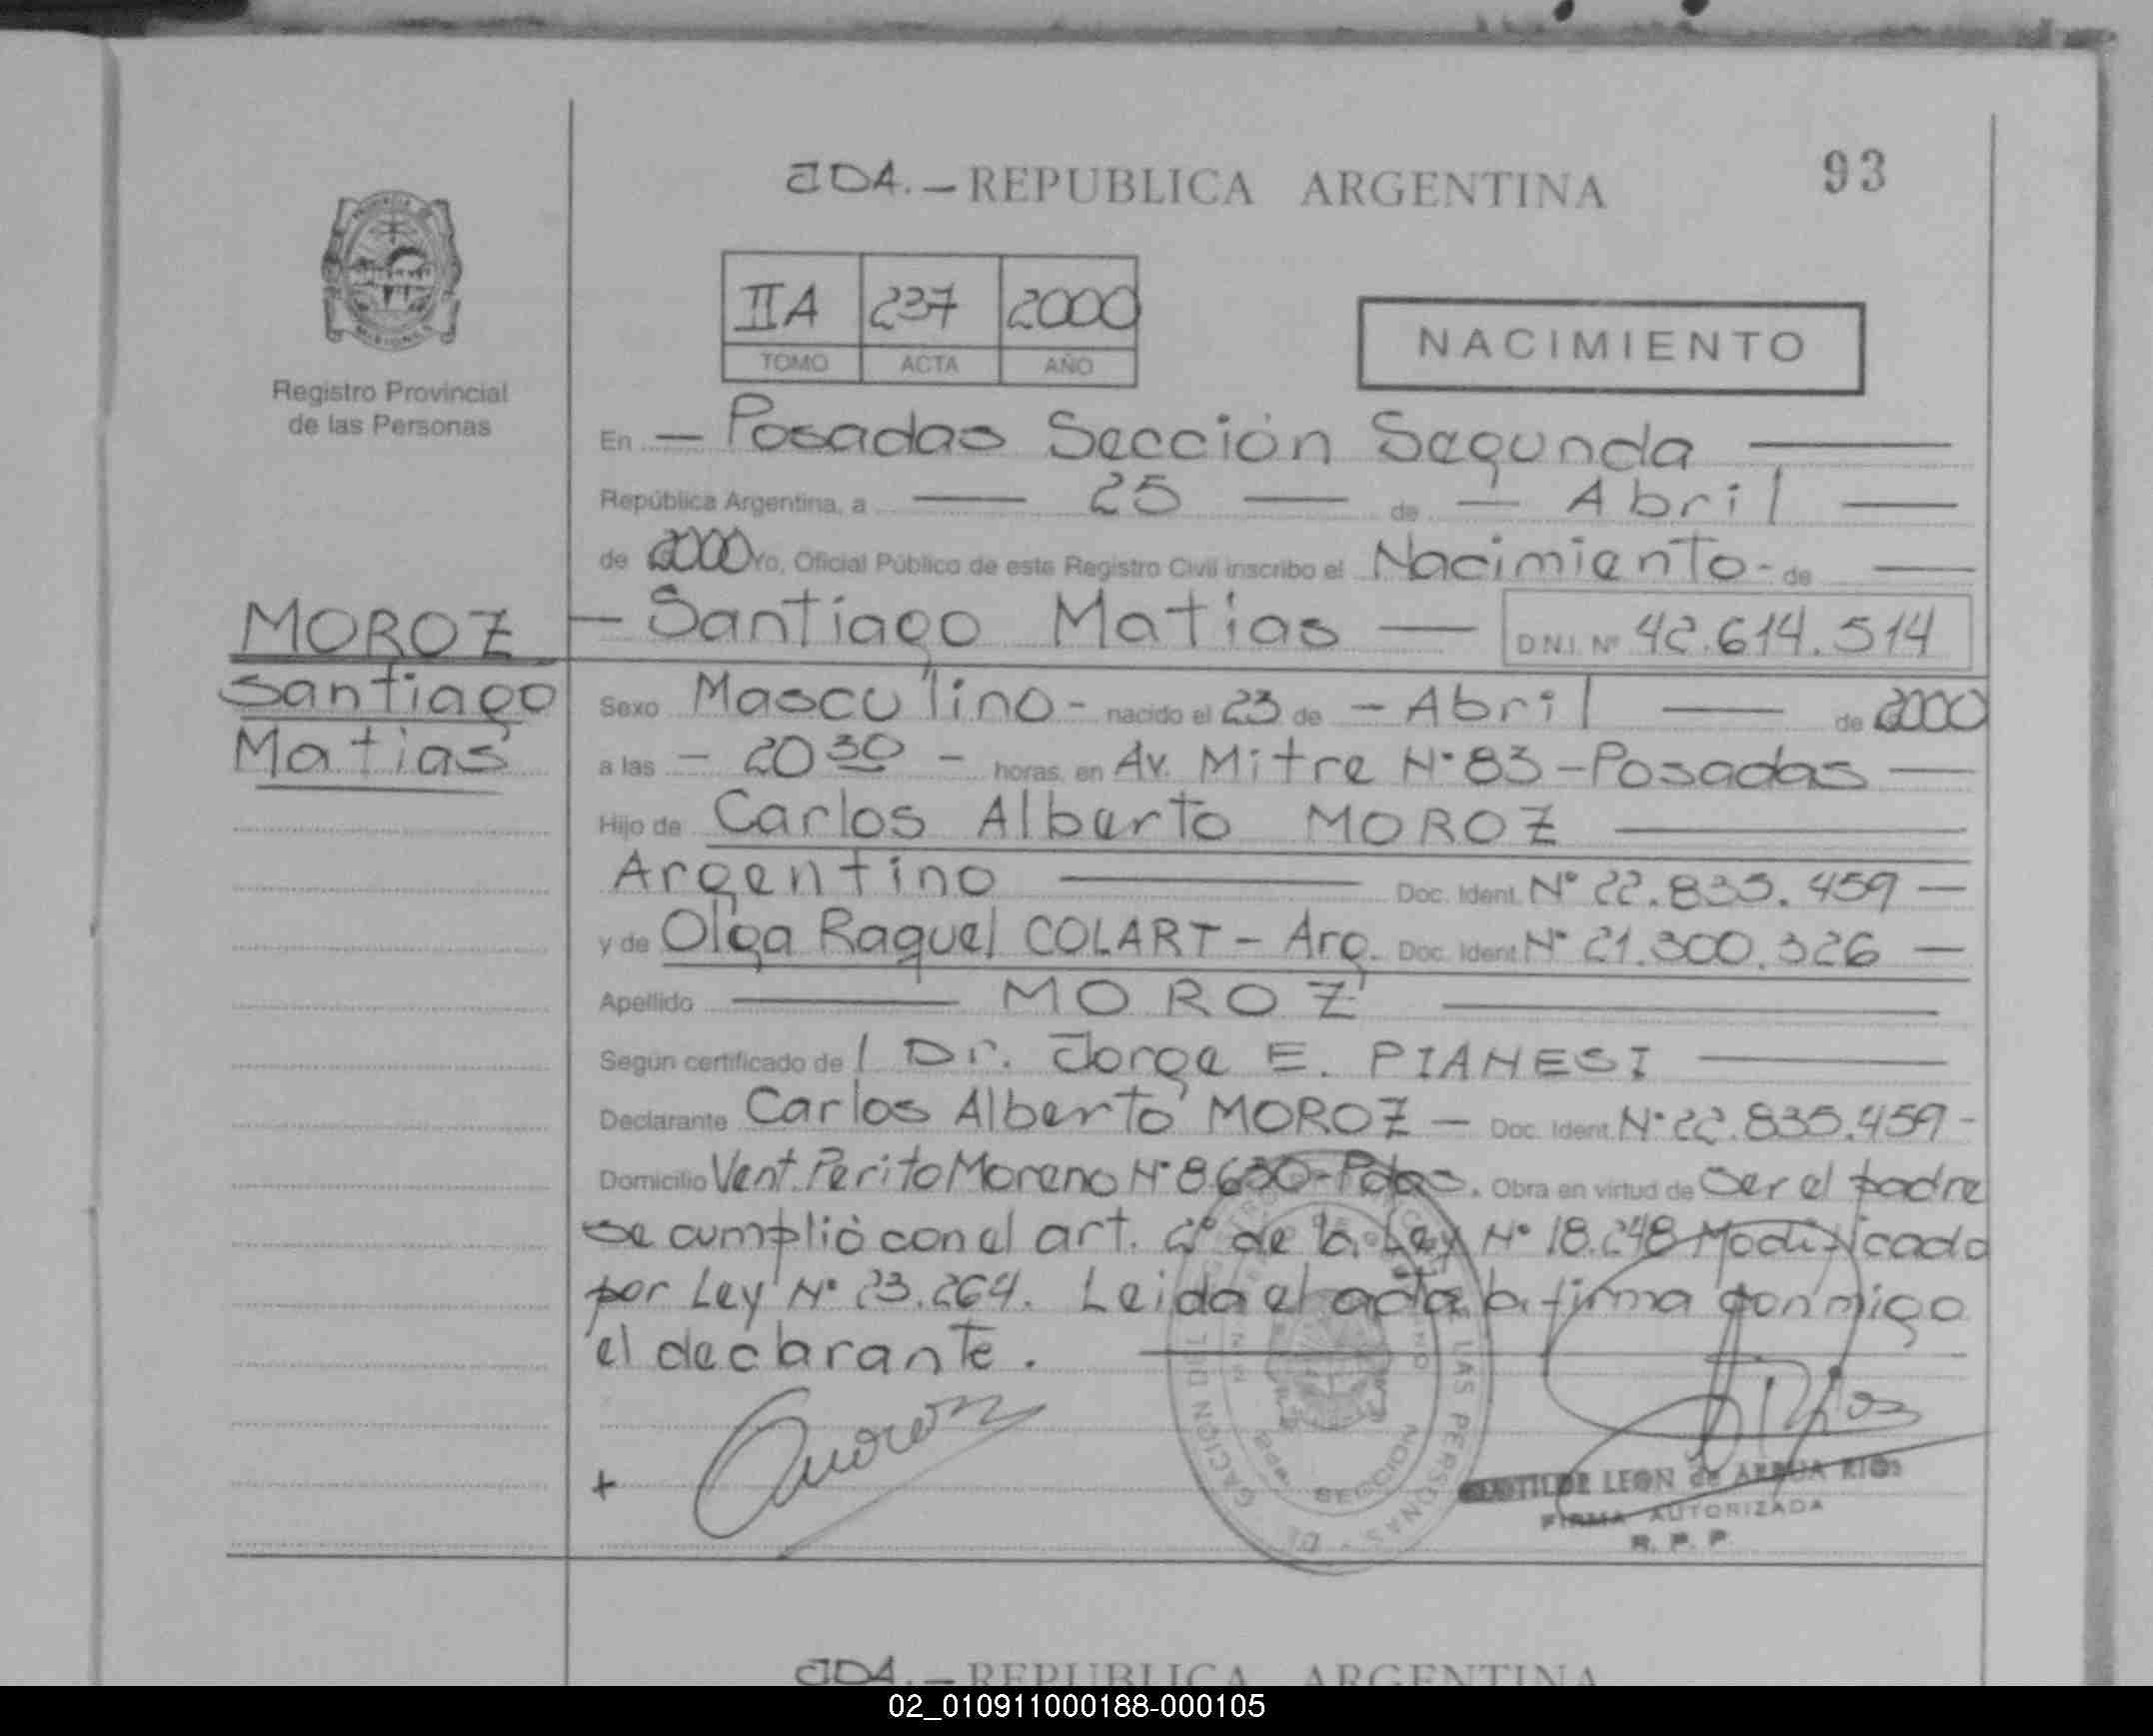 JDA.- REPUBLICA ARGENTINA
93
IIA 237 2000
TOMO ACTA AÑO
NACIMIENTO
Registro Provincial
de las Personas
En - Posadas Sección Segunda
República Argentina, a 25 de - Abril
de 2000 Yo, Oficial Público de este Registro Civil inscribo el Nacimiento - de
MOROZ
Santiago
Matias
- Santiago Matias - D.N.I. Nº 42.614.514
Sexo Masculino - nacido el 23 de - Abril de 2000
a las - 20 30 - horas. en Av. Mitre Nº 83 - Posadas
Hijo de Carlos Alberto MOROZ
Argentino Doc. Ident. Nº 22.835.459 -
y de Olga Raquel COLART - Arg. Doc. Ident. Nº 21.300.326 -
Apellido MOROZ
Según certificado de l Dr. Jorge E. PIANESI
Declarante Carlos Alberto MOROZ - Doc. Ident. Nº 22.835.459 -
Domicilio Vent. Perito Moreno Nº 8630 - Pdas. Obra en virtud de ser el padre
se cumplió con el art. 4º de la Ley Nº 18.248 Modificado
por Ley Nº 23.264. Leida el acta la firma conmigo
el declarante.
LAS PERSONAS
SECCION
LEON de
RIOS
FIRMA AUTORIZADA
R. P. P.
JDA.- REPUBLICA ARGENTINA
02_010911000188-000105